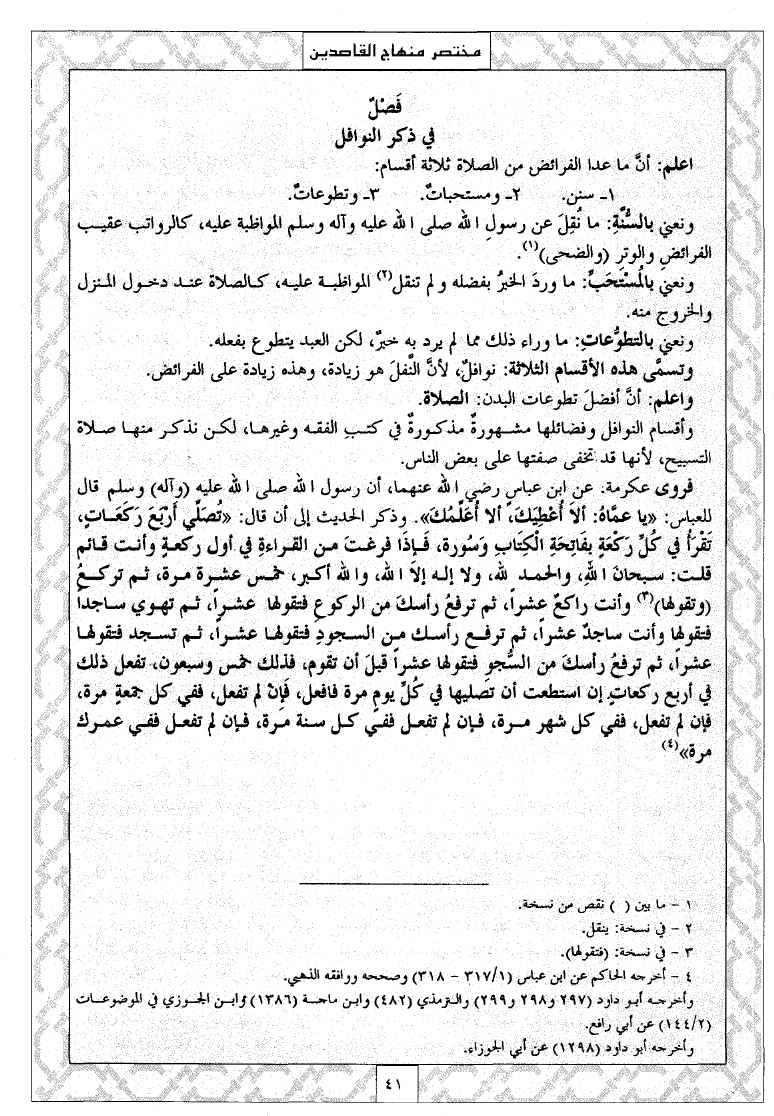 مختصر منهاج القاصدين
فَصْلٌ
في ذكر النوافل
اعلم: أنَّ ما عدا الفرائض من الصلاة ثلاثة أقسام:
١ـ سنن. ٢ـ ومستحباتٌ. ٣ـ وتطوعاتٌ.
ونعني بالسُّنَّةِ: ما نُقِلَ عن رسولِ الله صلى الله عليه وآله وسلم المواظبة عليه، كالرواتب عقيب
الفرائضِ والوتر (والضحى)(١).
ونعني بالمُسْتَحَبِّ: ما وردَ الخبرُ بفضله ولم تنقل(٢) المواظبة عليه، كالصلاة عند دخول المنزل
والخروج منه.
ونعني بالتطوُّعاتِ: ما وراء ذلك مما لم يرد به خبرٌ، لكن العبد يتطوع بفعله.
وتسمَّى هذه الأقسام الثلاثة: نوافلٌ، لأنَّ النَّفلَ هو زيادة، وهذه زيادة على الفرائض.
واعلم: أنَّ أفضلَ تطوعات البدن: الصلاة.
وأقسام النوافل وفضائلها مشهورةٌ مذكورةٌ في كتبِ الفقه وغيرها، لكن نذكر منها صلاة
التسبيح، لأنها قد تخفى صفتها على بعض الناس.
فروى عكرمة: عن ابن عباس رضي الله عنهما، أن رسول الله صلى الله عليه (وآله) وسلم قال
للعباس: «يا عمَّاهُ: ألاَ أُعْطِيَكَ، ألا أُعَلِّمُكَ». وذكر الحديث إلى أن قال: «تُصَلِّي أَرْبَعَ رَكَعَاتٍ،
تَقْرَأُ في كُلِّ رَكعَةٍ بفَاتِحَةِ الْكِتَابِ وَسُورة، فَإذَا فرغتَ من القراءةِ في أول ركعةٍ وأنت قائم
قلت: سبحانَ اللهِ، والحمد لله، ولا إله إلاَ الله، والله أكبر، خمسَ عشرةَ مرة، ثم تركعُ
(وتقولها)(٣) وأنت راكعٌ عشراً، ثم ترفعُ رأسكَ من الركوعِ فتقولها عشراً، ثم تهوي ساجداً
فتقولها وأنت ساجدٌ عشراً، ثم ترفع رأسك من السجودِ فتقولها عشراً، ثم تسجد فتقولها
عشراً، ثم ترفعُ رأسكَ من السُّجوِ فتقولها عشراً قبلَ أن تقوم، فذلك خمس وسبعون، تفعل ذلك
في أربع ركعاتٍ إن استطعت أن تصليها في كُلِّ يومٍ مرة فافعل، فَإِنْ لم تفعل، ففي كل جمعةٍ مرة،
فإن لم تفعل، ففي كل شهر مرة، فإن لم تفعل ففي كل سنة مرة، فإن لم تفعل ففي عمرك
مرة»(٤)
١ - ما بين ( ) نقص من نسخة.
٢ - في نسخة: ينقل.
٣ - في نسخة: (فتقولها).
٤ - أخرجه الحاكم عن ابن عباس (٣١٧/١ - ٣١٨) وصححه ووافقه الذهبي.
وأخرجه أبو داود (٢٩٧ و٢٩٨ و٢٩٩) والترمذي (٤٨٢) وابن ماجة (١٣٨٦) وابن الجوزي في الموضوعات
(١٤٤/٢) عن أبي رافع.
وأخرجه أبو داود (١٢٩٨) عن أبي الجوزاء.
٤١